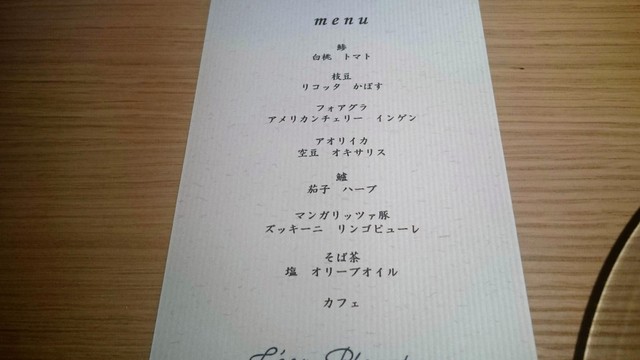 menu
鯵
白桃 トマト
枝豆
リコッタ かぼす
フォアグラ
アメリカンチェリー インゲン
アオリイカ
空豆 オキサリス
鱸
茄子 ハーブ
マンガリッツァ豚
ズッキーニ リンゴピューレ
そば茶
塩 オリーブオイル
カフェ